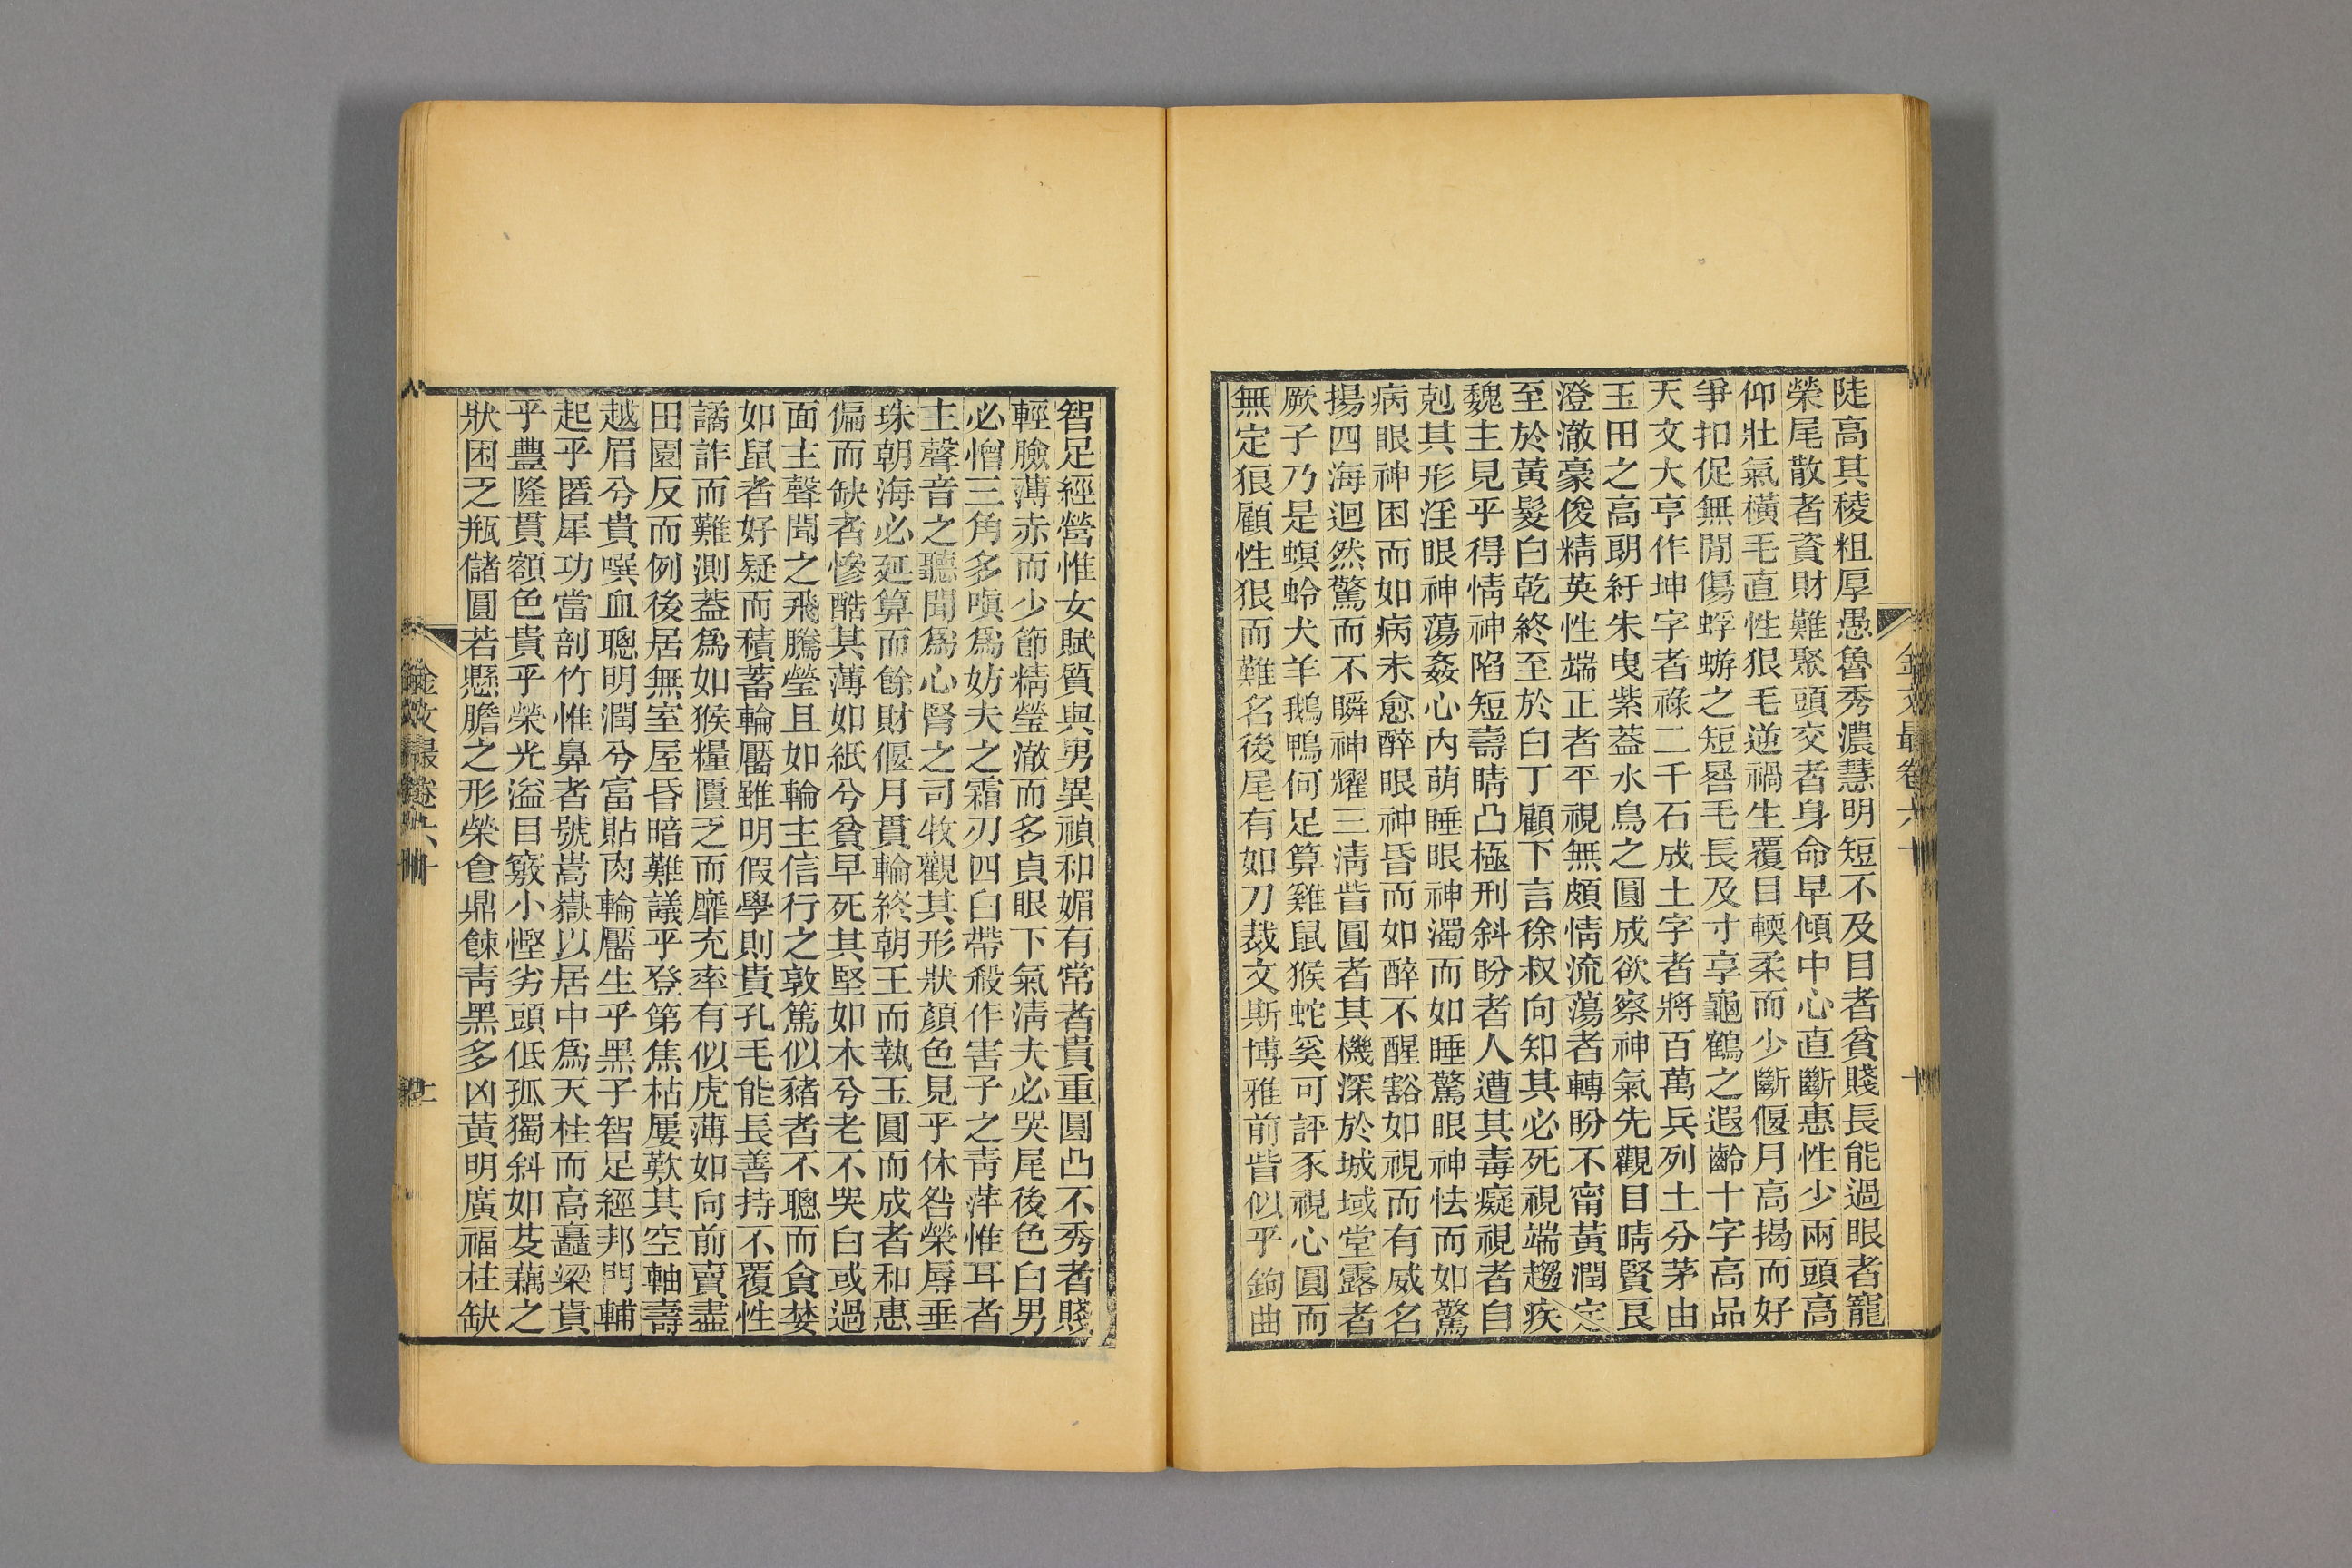 陡高其稜粗厚愚魯秀濃慧明短不及目者貧賤長能過眼者寵
榮尾散者資財難聚頭交者身命早傾中心直斷惠性少兩頭高
仰壯氣橫毛直性狠毛逆禍生覆目輭柔而少斷偃月高揭而好
爭扣促無閒傷蜉蝣之短晷毛長及寸享龜鶴之遐齡十字高品
天文大亨作坤字者祿二千石成土字者將百萬兵列土分茅由
玉田之高朗紆朱曳紫葢水鳥之圓成欲察神氣先觀目睛賢良
澄澈豪俊精英性端正者平視無頗情流蕩者轉盼不甯黃潤定
至於黃髮白乾終至於白丁顧下言徐叔向知其必死視端趨疾
魏主見乎得情神陷短壽睛凸極刑斜盼者人遭其毒癡視者自
剋其形淫眼神蕩姦心內萌睡眼神濁而如睡驚眼神怯而如驚
病眼神困而如病未愈醉眼神昏而如醉不醒豁如視而有威名
揚四海迴然驚而不瞬神耀三淸眥圓者其機深於城域堂露者
厥子乃是螟蛉犬羊鵝鴨何足算雞鼠猴蛇奚可評豕視心圓而
無定狼顧性狠而難名後尾有如刀裁文斯博雅前眥似乎鉤曲
金文最卷六十
十
智足經營惟女賦質與男異禎和媚有常者貴重圓凸不秀者賤
輕臉薄赤而少節精瑩澈而多貞眼下氣淸夫必哭尾後色白男
必憎三角多嗔爲妨夫之霜刃四白帶殺作害子之靑萍惟耳者
主聲音之聽聞爲心腎之司牧觀其形狀顏色見乎休咎榮辱垂
珠朝海必延算而餘財偃月貫輪終朝王而執玉圓而成者和惠
偏而缺者慘酷其薄如紙兮貧早死其堅如木兮老不哭白或過
面主聲聞之飛騰瑩且如輪主信行之敦篤似豬者不聰而貪婪
如鼠者好疑而積蓄輪靨雖明假學則貴孔毛能長善持不覆性
譎詐而難測葢爲如猴糧匱乏而靡充率有似虎薄如向前賣盡
田園反而例後居無室屋昏暗難議乎登第焦枯屢歎其空軸壽
越眉兮貴噀血聰明潤兮富貼肉輪靨生乎黑子智足經邦門輔
起乎匿犀功當剖竹惟鼻者號嵩嶽以居中爲天柱而高矗梁貴
乎豐隆貫額色貴乎榮光溢目竅小慳劣頭低孤獨斜如芟藕之
狀困乏瓶儲圓若懸膽之形榮食鼎餗靑黑多凶黃明廣福柱缺
金文最卷六十